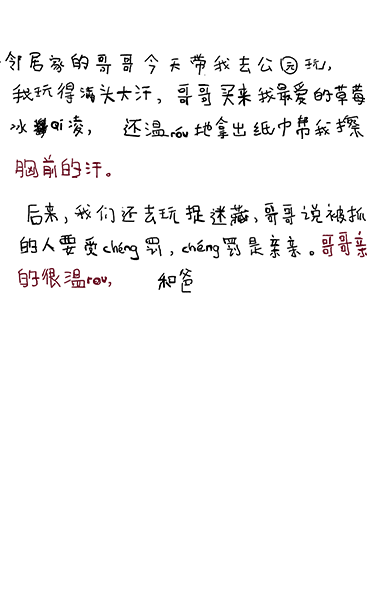 邻居家的哥哥今天带我去公园玩，
我玩得满头大汗，哥哥买来我最爱的草莓
冰qi凌，还温róu地拿出纸巾帮我擦
胸前的汗。
后来，我们还去玩捉迷藏，哥哥说被抓
的人要受chéng罚，chéng罚是亲亲。哥哥亲
的很温rou，和爸